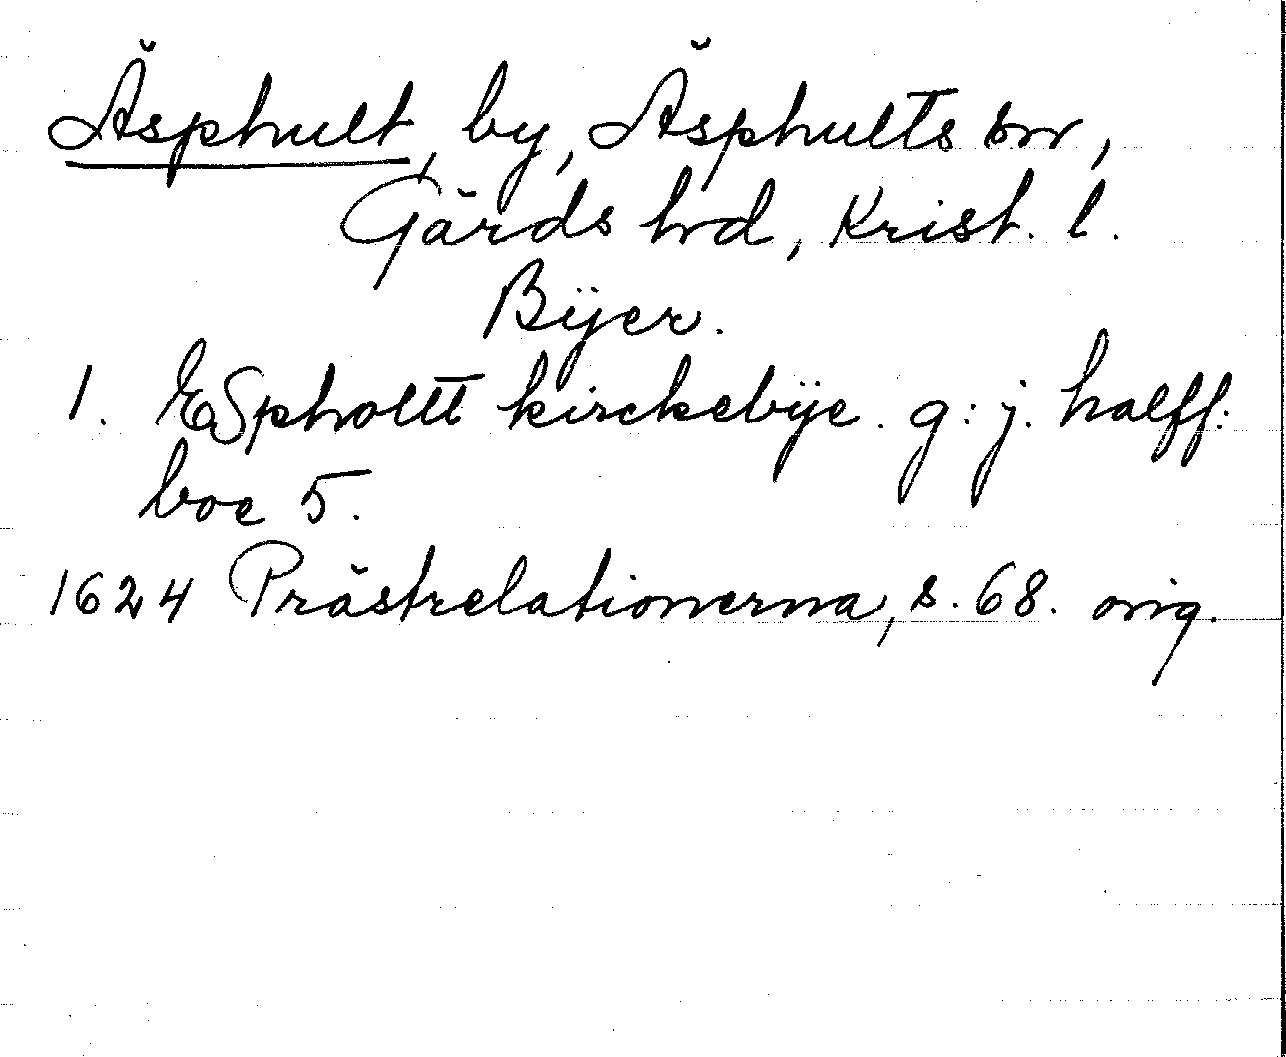 Äsphult, by, Äsphults sn,
Gärds hd, Krist. l.
Bÿer.
1. ESpholtt kirckebÿe. g: j. halff:
boe 5.
1624 Prästrelationerna, s. 68. orig.